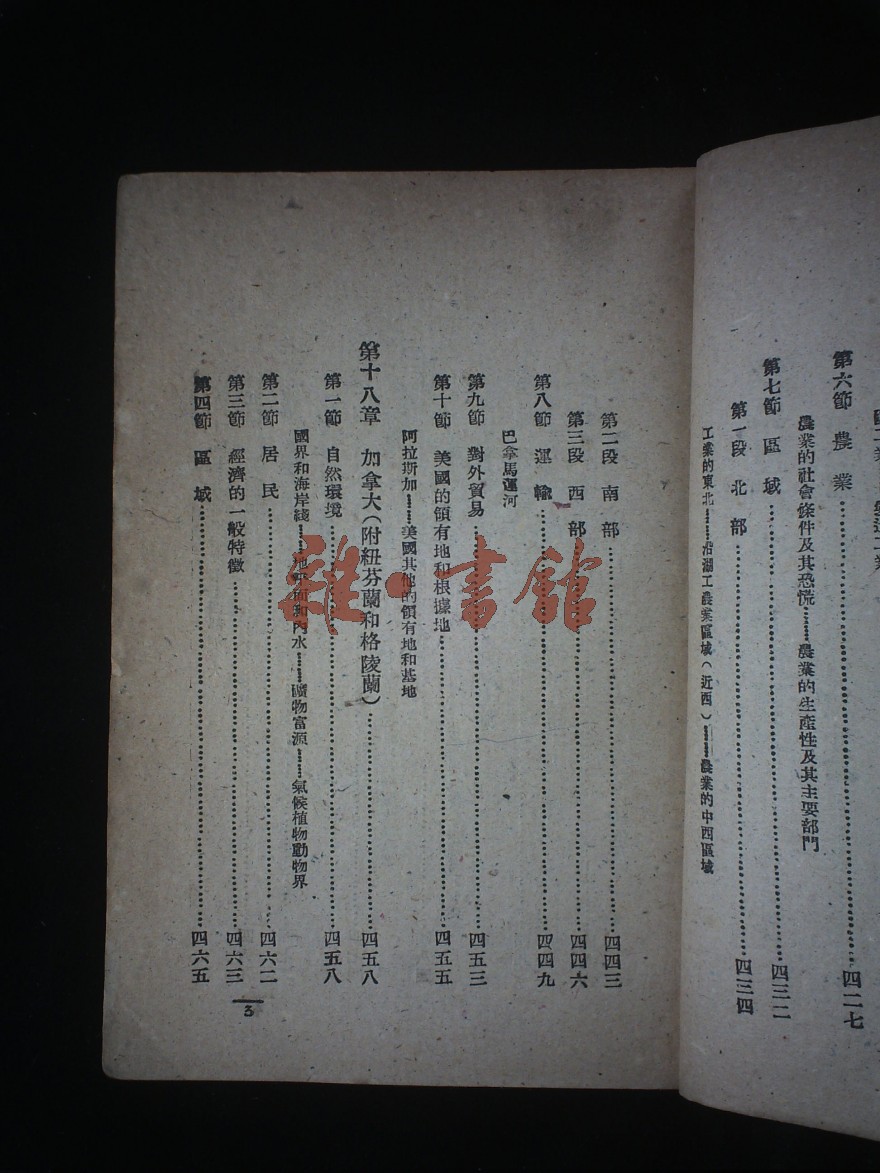 第六節 農業……四二七
農業的社會條件及其恐慌……農業的生產性及其主要部門
第七節 區域……四三二
第一段 北部……四三四
工業的東北……沿湖工農業區域(近西)……農業的中西區域
第二段 南部……四四三
第三段 西部……四四六
第八節 運輸……四四九
巴拿馬運河
第九節 對外貿易……四五三
第十節 美國的領有地和根據地……四五五
阿拉斯加……美國其他的領有地和基地
第十八章 加拿大(附紐芬蘭和格陵蘭)……四五八
第一節 自然環境……四五八
國界和海岸綫……地平面和內水……礦物富源……氣候植物動物界
第二節 居民……四六二
第三節 經濟的一般特徵……四六三
第四節 區域……四六五
3
雜·書館